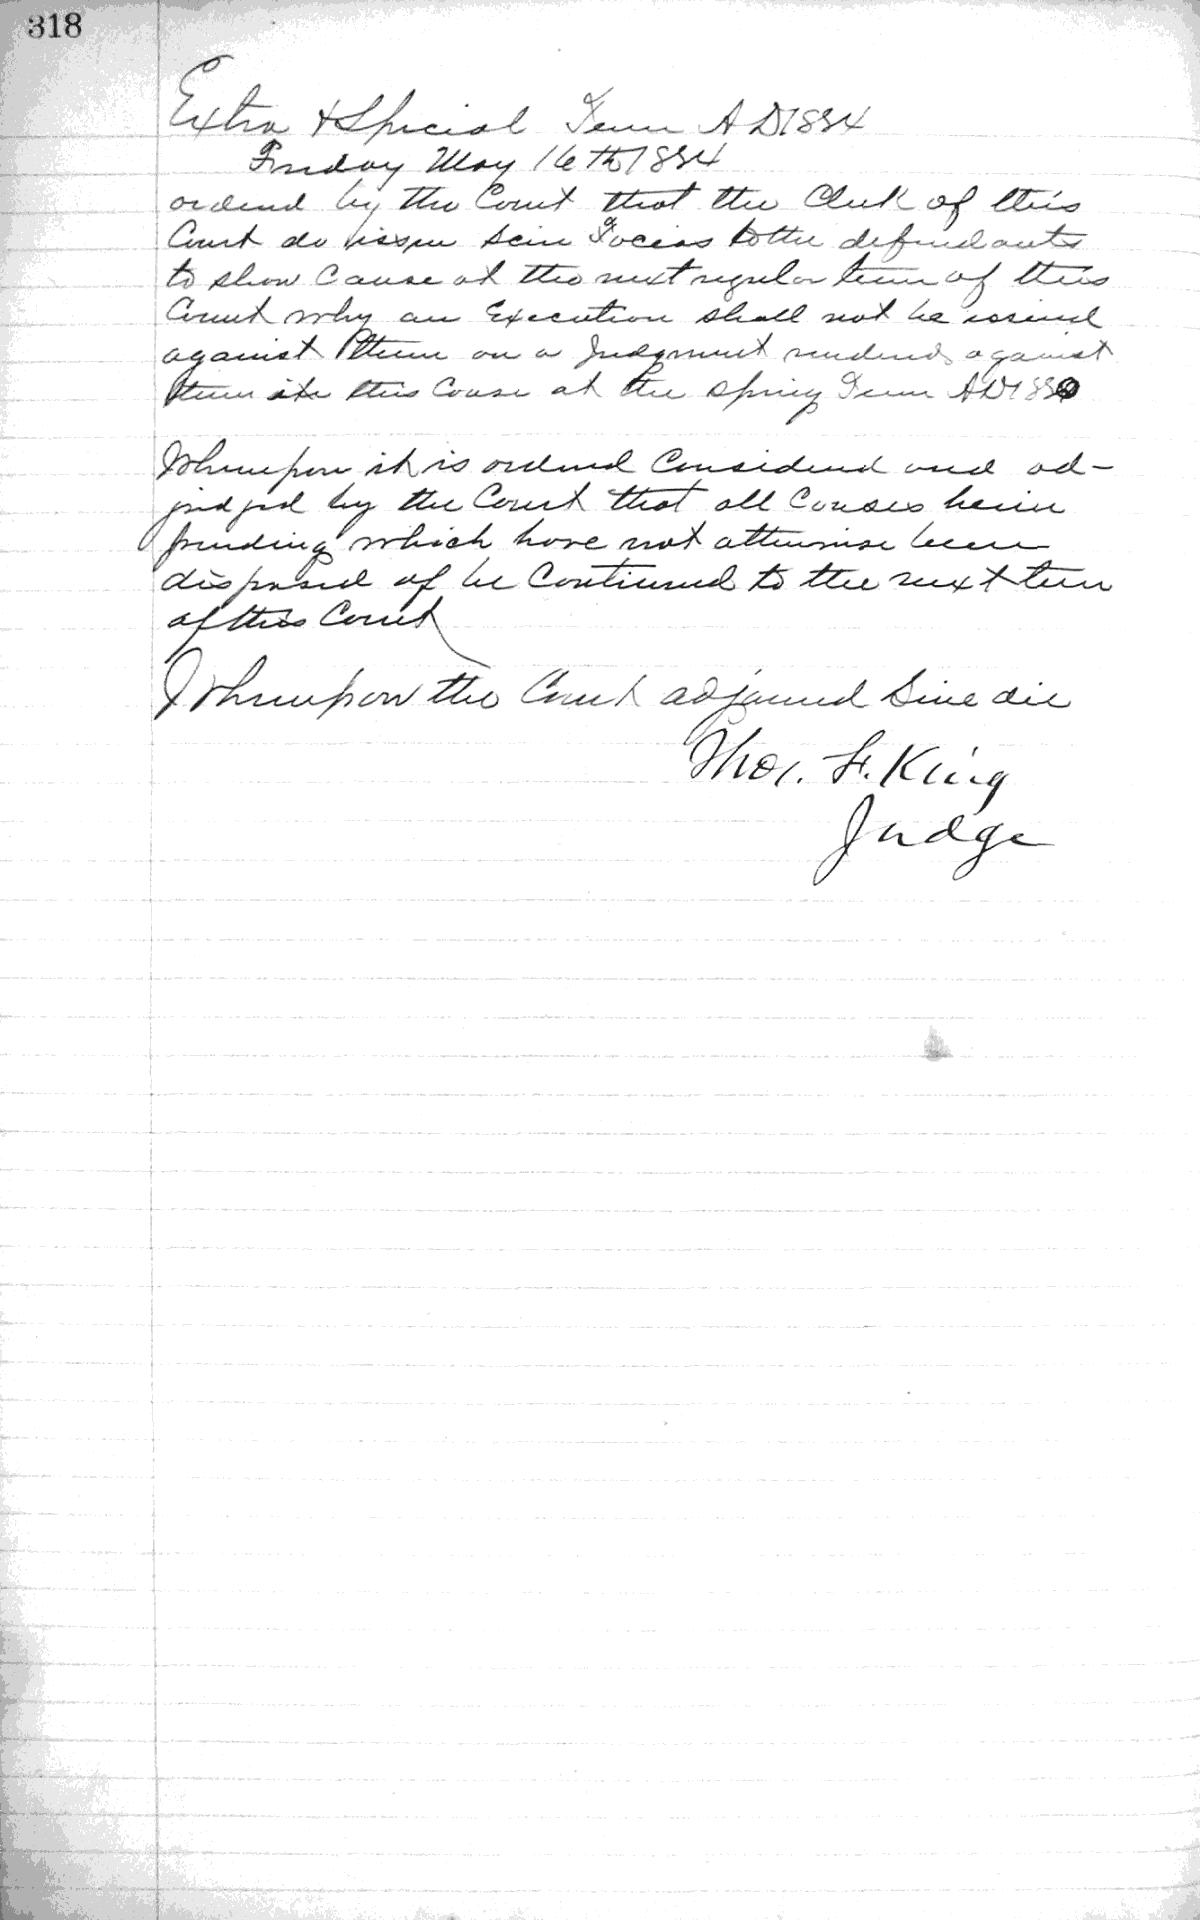 318
Extra & Special Term A D 1884
Friday May 16th 1884
ordered by the Court that the Clerk of this
Court do issue Scire Facias to the defendants
to show Cause at the next regular term of this
Court why an Execution shall not be issued
against them on a Judgment rendered against
them in this Cause at the Spring Term A D 1880
Whereupon it is ordered Considered and ad-
judged by the Court that all Causes herein
pending which have not otherwise been
disposed of be Continued to the next term
of this Court
Whereupon the Court adjourned Sine die
Thos. F. King
Judge